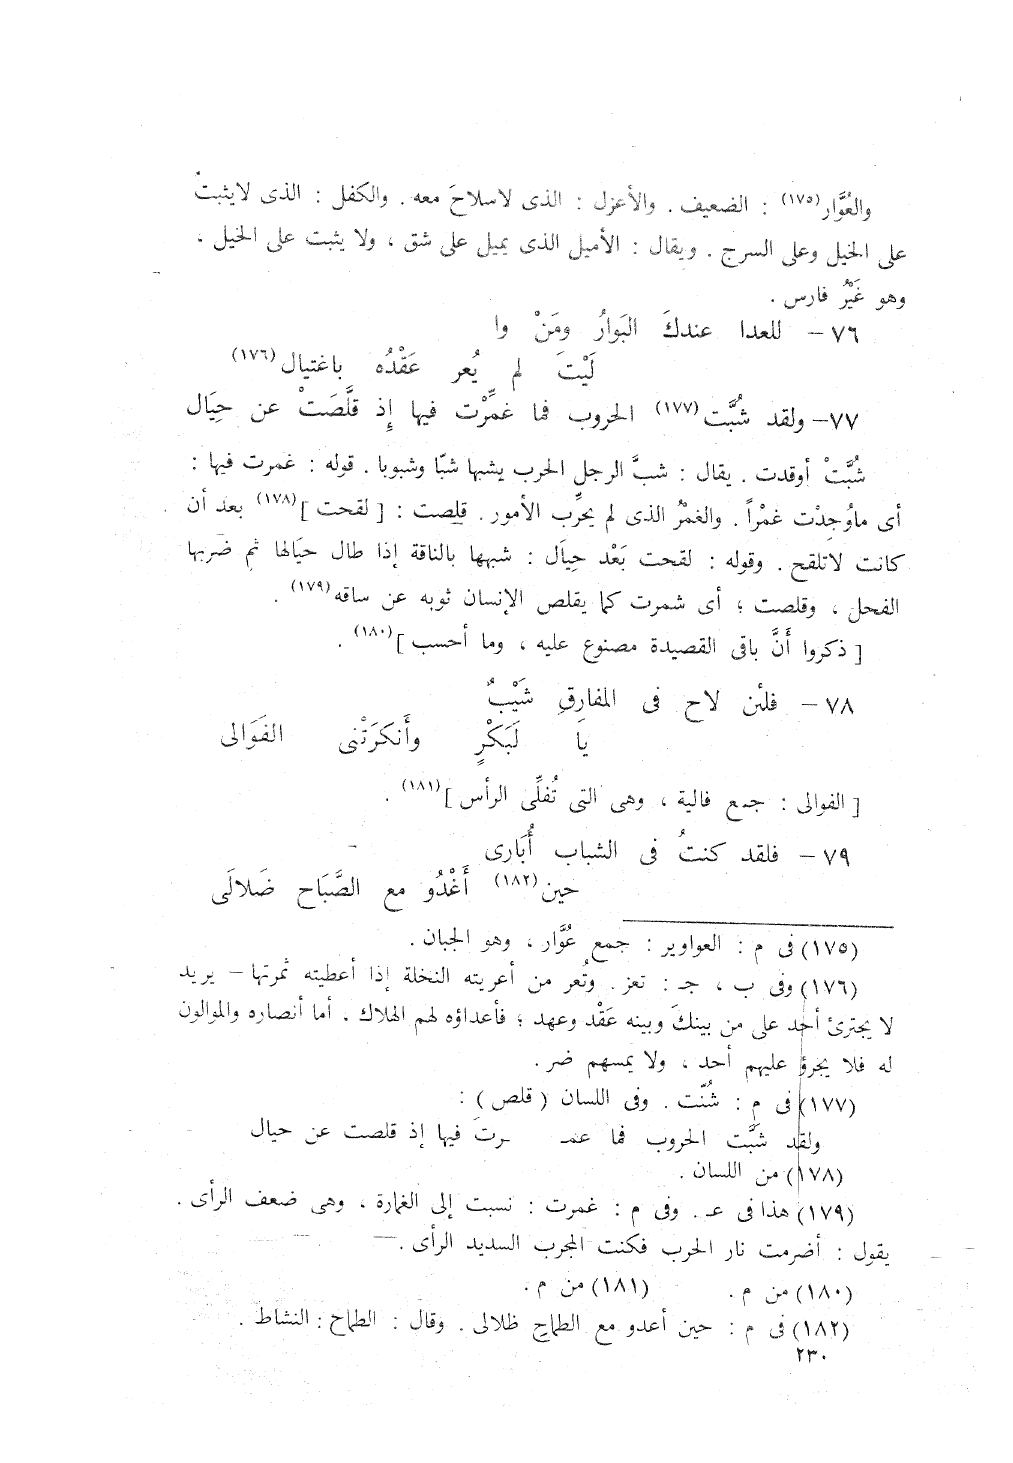 والعُوَّار(١٧٥) : الضعيف . والأعزل : الذى لاسلاحَ معه . والكفل : الذى لايثبتُ
على الخيل وعلى السرج . ويقال : الأميل الذى يميل على شق ، ولا يثبت على الخيل ،
وهو غَيْرُ فارس .
٧٦ – للعدا عندكَ البَوارُ ومَنْ وا
لَيْتَ لم يُعر عَقْدُه باغتيال(١٧٦)
٧٧ – ولقد شُبَّت(١٧٧) الحروب فما غمِّرْت فيها إِذ قلَّصَتْ عن حِيَال
شُبَّتْ أوقدت . يقال : شبَّ الرجل الحرب يشبها شبّا وشبوبا . قوله : غمرت فيها :
أى ماوُجِدْت غمْراً . والغمْرُ الذى لم يجرِّب الأمور . قلصت : [ لقحت ](١٧٨) بعد أن
كانت لاتلقح . وقوله : لقحت بَعْد حِيَال : شبهها بالناقة إذا طال حيَالها ثم ضربها
الفحل ، وقلصت ؛ أى شمرت كما يقلص الإنسان ثوبه عن ساقه(١٧٩) .
[ ذكروا أَنَّ باقى القصيدة مصنوع عليه ، وما أحسب ](١٨٠) .
٧٨ – فلئن لاح فى المفارِقِ شَيْبٌ
يَا لَبَكْرٍ وأَنكرَتْنى الفَوَالى
[ الفوالى : جمع فالية ، وهى التى تُفلِّى الرأس ](١٨١) .
٧٩ – فلقد كنتُ فى الشباب أُبَارى
حين(١٨٢) أَغْدُو مع الصَّبَاح ضَلالَى
(١٧٥) فى م : العواوير : جمع عُوَّار ، وهو الجبان .
(١٧٦) وفى ب ، جـ : تعز . وتُعر من أعريته النخلة إذا أعطيته ثمرتها – يريد
لا يجترئ أحد على من بينكَ وبينه عَقْد وعهد ؛ فأعداؤه لهم الهلاك . أما أنصاره والموالون
له فلا يجرؤ عليهم أحد ، ولا يمسهم ضر .
(١٧٧) فى م : شُنّت . وفى اللسان ( قلص ) :
ولقد شبَّت الحروب فما غمـ ـرتَ فيها إذ قلصت عن حيال
(١٧٨) من اللسان .
(١٧٩) هذا فى عـ . وفى م : غمرت : نسبت إلى الغمارة ، وهى ضعف الرأى .
يقول : أضرمت نار الحرب فكنت المجرب السديد الرأى .
(١٨٠) من م . (١٨١) من م .
(١٨٢) فى م : حين أعدو مع الطماح ظلالى . وقال : الطماح : النشاط .
٢٣٠